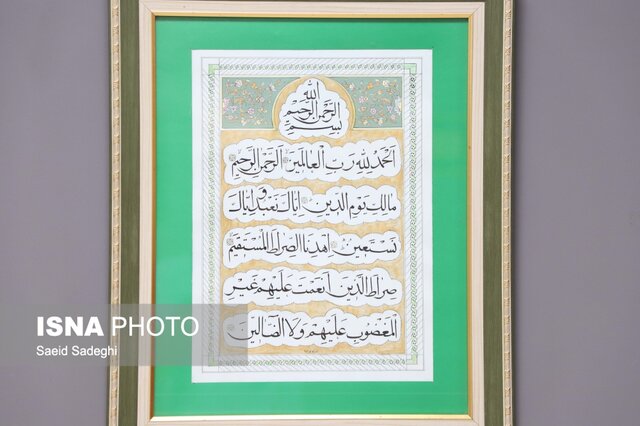 بسم الله الرحمن الرحیم
الحمد لله رب العالمین الرحمن الرحیم
مالک یوم الدین ایاک نعبد و ایاک
نستعین اهدنا الصراط المستقیم
صراط الذین انعمت علیهم غیر
المغضوب علیهم ولا الضالین
ISNA PHOTO
Saeid Sadeghi